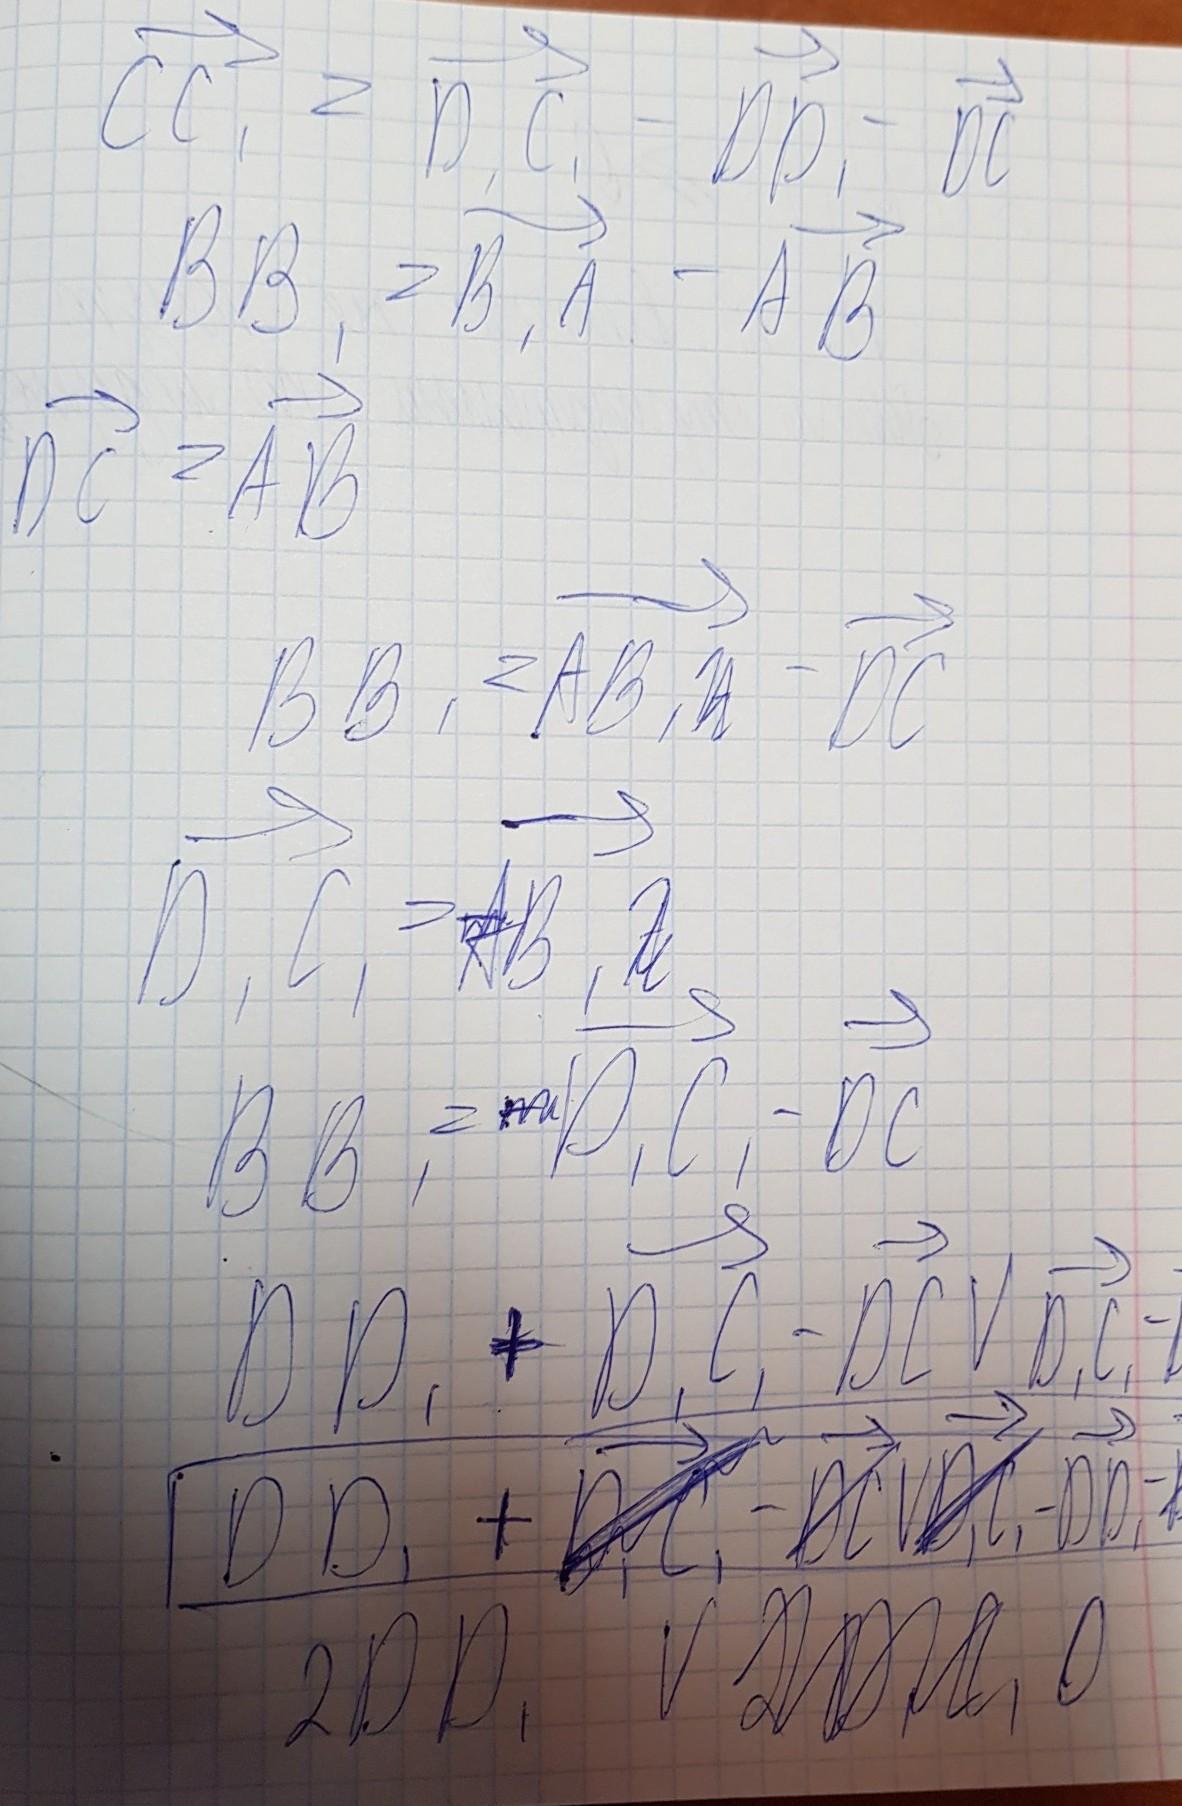 CC₁ = D₁C₁ - DD₁ - DC
BB₁ = B₁A - AB
DC = AB
BB₁ = AB₁ - DC
D₁C₁ = AB₁
BB₁ = D₁C₁ - DC
DD₁ + D₁C₁ - DC V D₁C₁ -
DD₁ + D₁C₁ - DC V D₁C₁ - DD₁ -
2DD₁ V 0